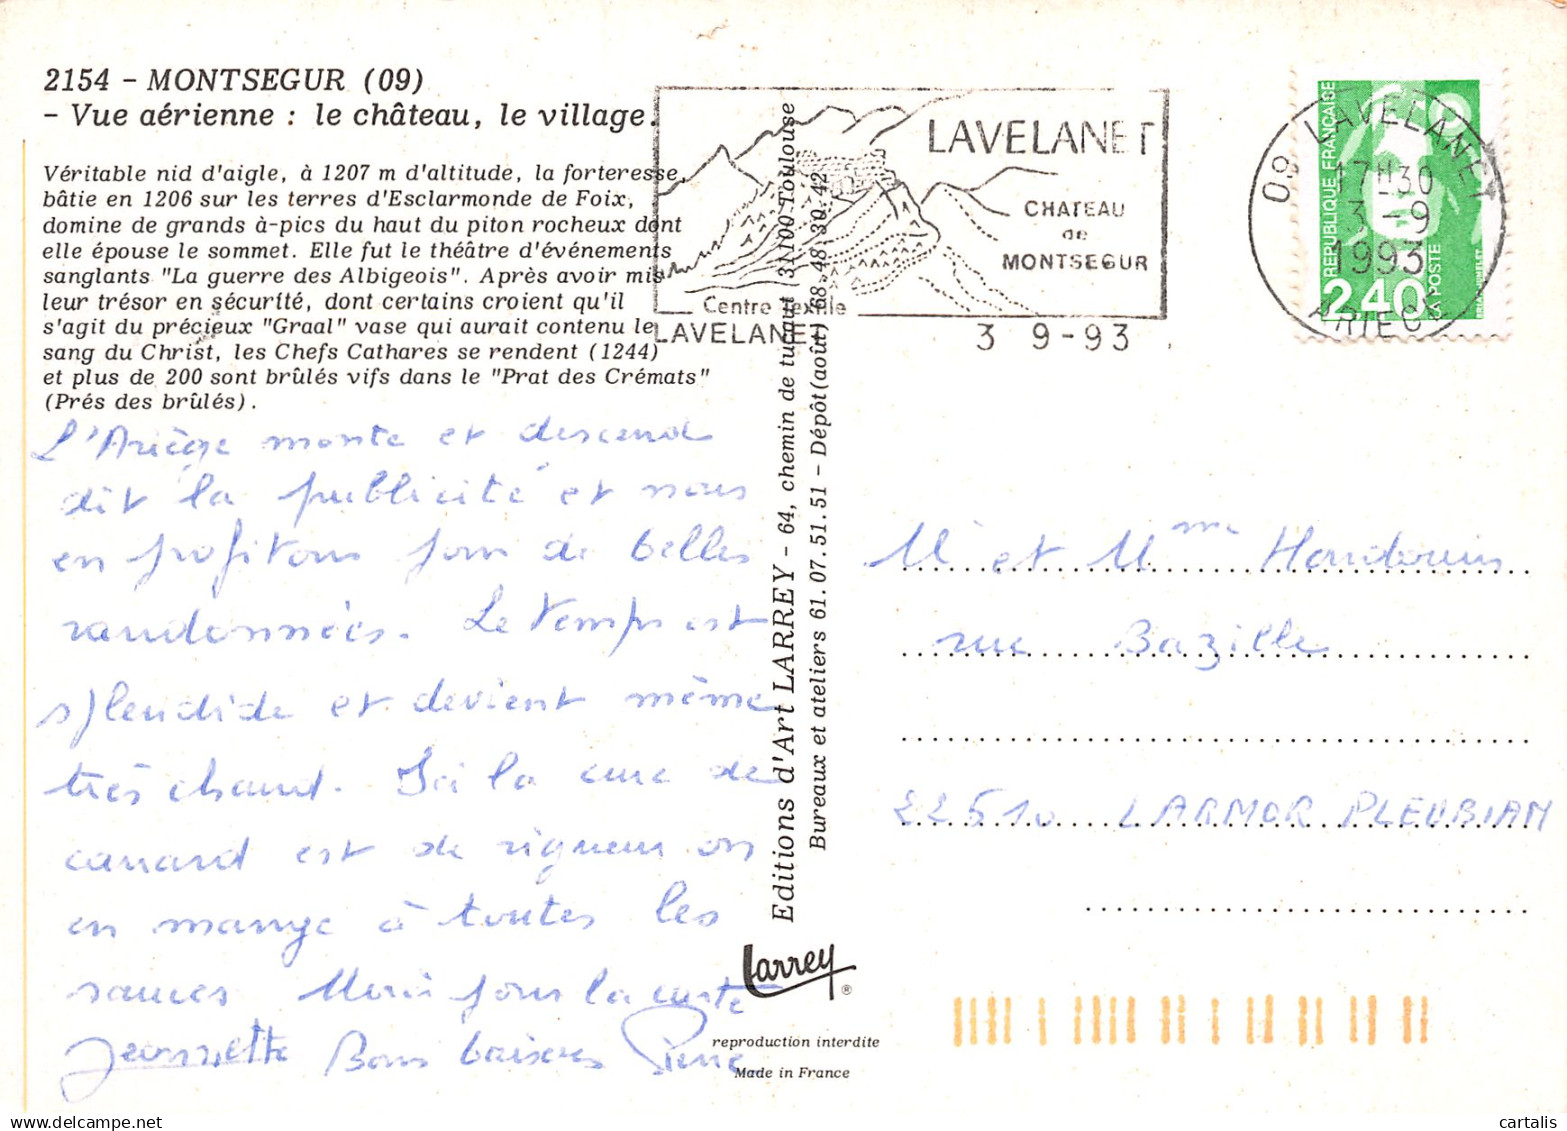 2154 - MONTSEGUR (09)
- Vue aérienne : le château, le village.
Véritable nid d'aigle, à 1207 m d'altitude, la forteresse,
bâtie en 1206 sur les terres d'Esclarmonde de Foix,
domine de grands à-pics du haut du piton rocheux dont
elle épouse le sommet. Elle fut le théâtre d'événements
sanglants "La guerre des Albigeois". Après avoir mis
leur trésor en sécurité, dont certains croient qu'il
s'agit du précieux "Graal" vase qui aurait contenu le
sang du Christ, les Chefs Cathares se rendent (1244)
et plus de 200 sont brûlés vifs dans le "Prat des Crémats"
(Prés des brûlés).
L'Ariège monte et descend
dit la publicité et nous
en profitons pour de belles
randonnées. Le temps est
splendide et devient même
très chaud. Ici la cure de
canard est de rigueur on
en mange à toutes les
sauces Merci pour la carte
Jeannette Bons baisers Pierre
Editions d'Art LARREY - 64, chemin de tucaut 31100 Toulouse
Bureaux et ateliers 61.07.51.51 - Dépôt (août) 68.48.30.42
Larrey ®
reproduction interdite
Made in France
LAVELANET
CHATEAU
de
MONTSEGUR
Centre Textile
LAVELANET
3 9-93
09 LAVELANET
17H30
3 -9
1993
ARIEGE
REPUBLIQUE FRANÇAISE
LA POSTE
2,40
M et Mme Hardouin
rue Bazille
22510 LARMOR PLEUBIAN
cartalis